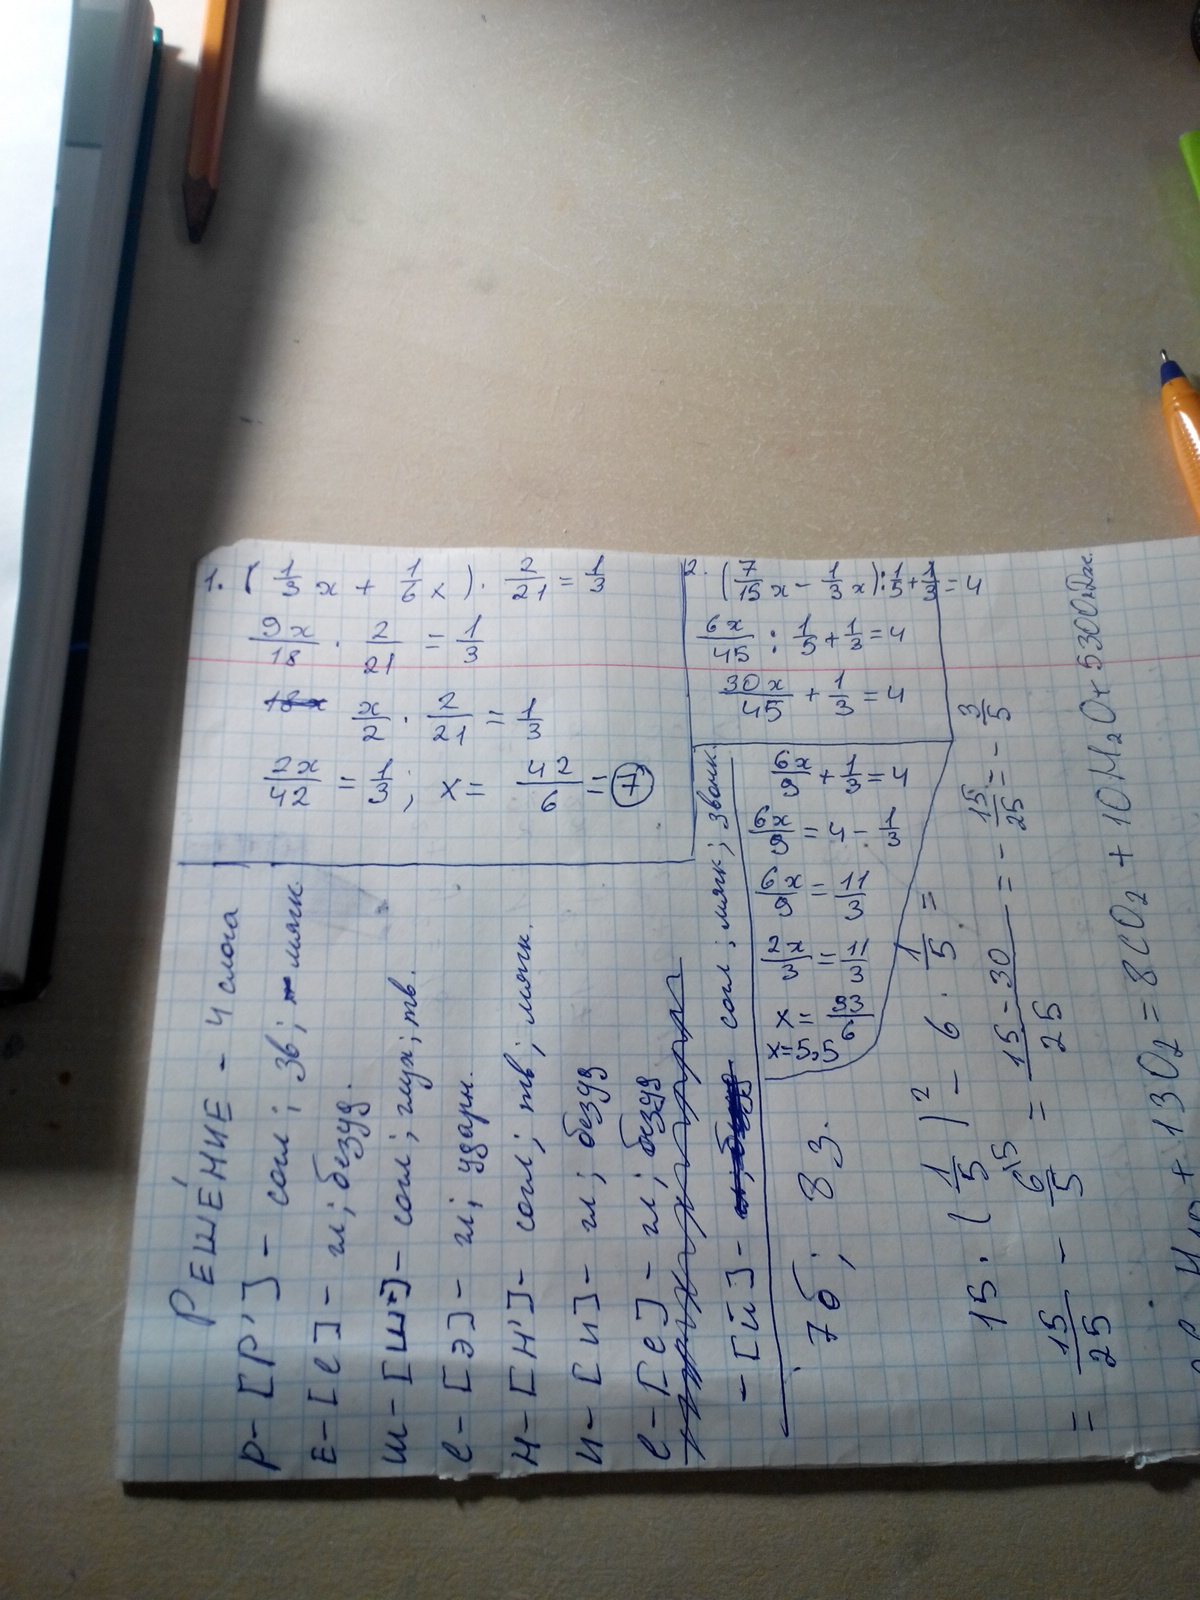 1. ( 1/3 x + 1/6 x ) · 2/21 = 1/3
9x/18 · 2/21 = 1/3
x/2 · 2/21 = 1/3
2x/42 = 1/3 ; x = 42/6 = 7
2. ( 7/15 x - 1/3 x ) : 1/5 + 1/3 = 4
6x/45 : 1/5 + 1/3 = 4
30x/45 + 1/3 = 4
6x/9 + 1/3 = 4
6x/9 = 4 - 1/3
6x/9 = 11/3
2x/3 = 11/3
x = 33/6
x = 5,5
РЕШЕ́НИЕ - 4 слога
Р - [Р'] - согл ; зв ; мягк.
Е - [е] - гл ; безуд.
Ш - [Ш] - согл ; глух ; тв.
е - [Э] - гл ; ударн.
Н - [Н'] - согл ; тв ; мягк.
И - [и] - гл ; безуд
е - [е] - гл ; безуд
- [й] - согл ; мягк ; звонк.
7б ; 8З.
15 · ( 1/5 )² - 6 · 1/5 =
= 15/25 - 6\5/5 = 15 - 30/25 = - 15/25 = - 3/5
+ 13O2 = 8CO2 + 10H2O + 5300кДж.